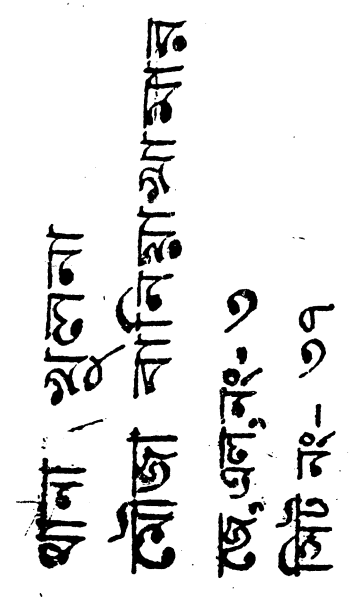 থানা খুলনা
মৌজা বানিয়াখামার
জে,এল,নং- ৩
সিট নং- ৩৭